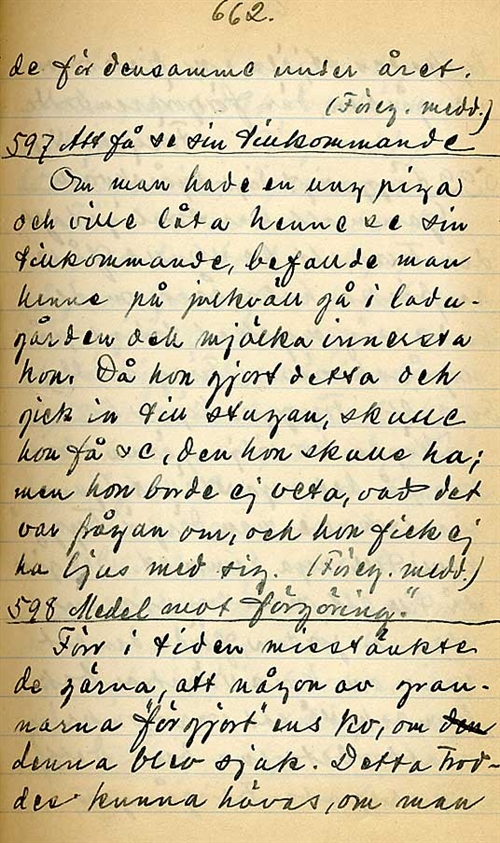 662.
de för densamme under året.
(Föreg. medd.)
597 Att få se sin tillkommande
Om man hade en ung piga
och ville låta henne se sin
tillkommande, befallde man
henne på julkväll gå i ladu-
gården och mjölka innersta
kon. Då hon gjort detta och
gick in till stugan, skulle
hon få se, den hon skulle ha;
men hon borde ej veta, vad det
var frågan om, och hon fick ej
ha ljus med sig. (Föreg. medd.)
598 Medel mot "förgöring."
Förr i tiden misstänkte
de gärna, att någon av gran-
narna "förgjort" ens ko, om den
denna blev sjuk. Detta trod-
des kunna hävas, om man